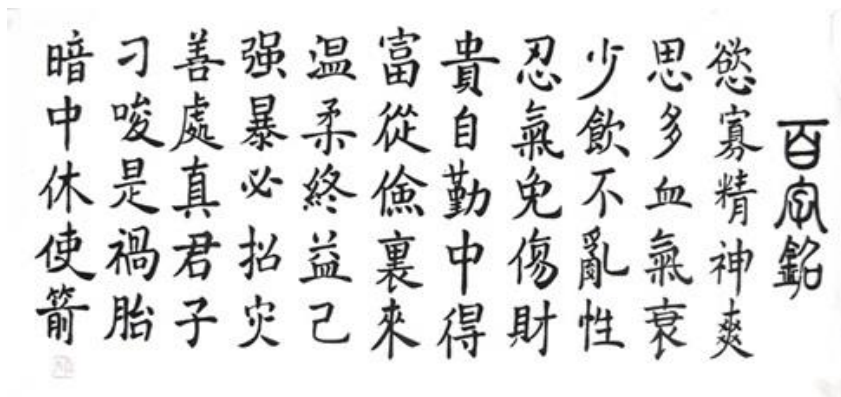 百字銘
慾寡精神爽
思多血氣衰
少飲不亂性
忍氣免傷財
貴自勤中得
富從儉裏來
温柔終益己
强暴必招灾
善處真君子
刁唆是禍胎
暗中休使箭